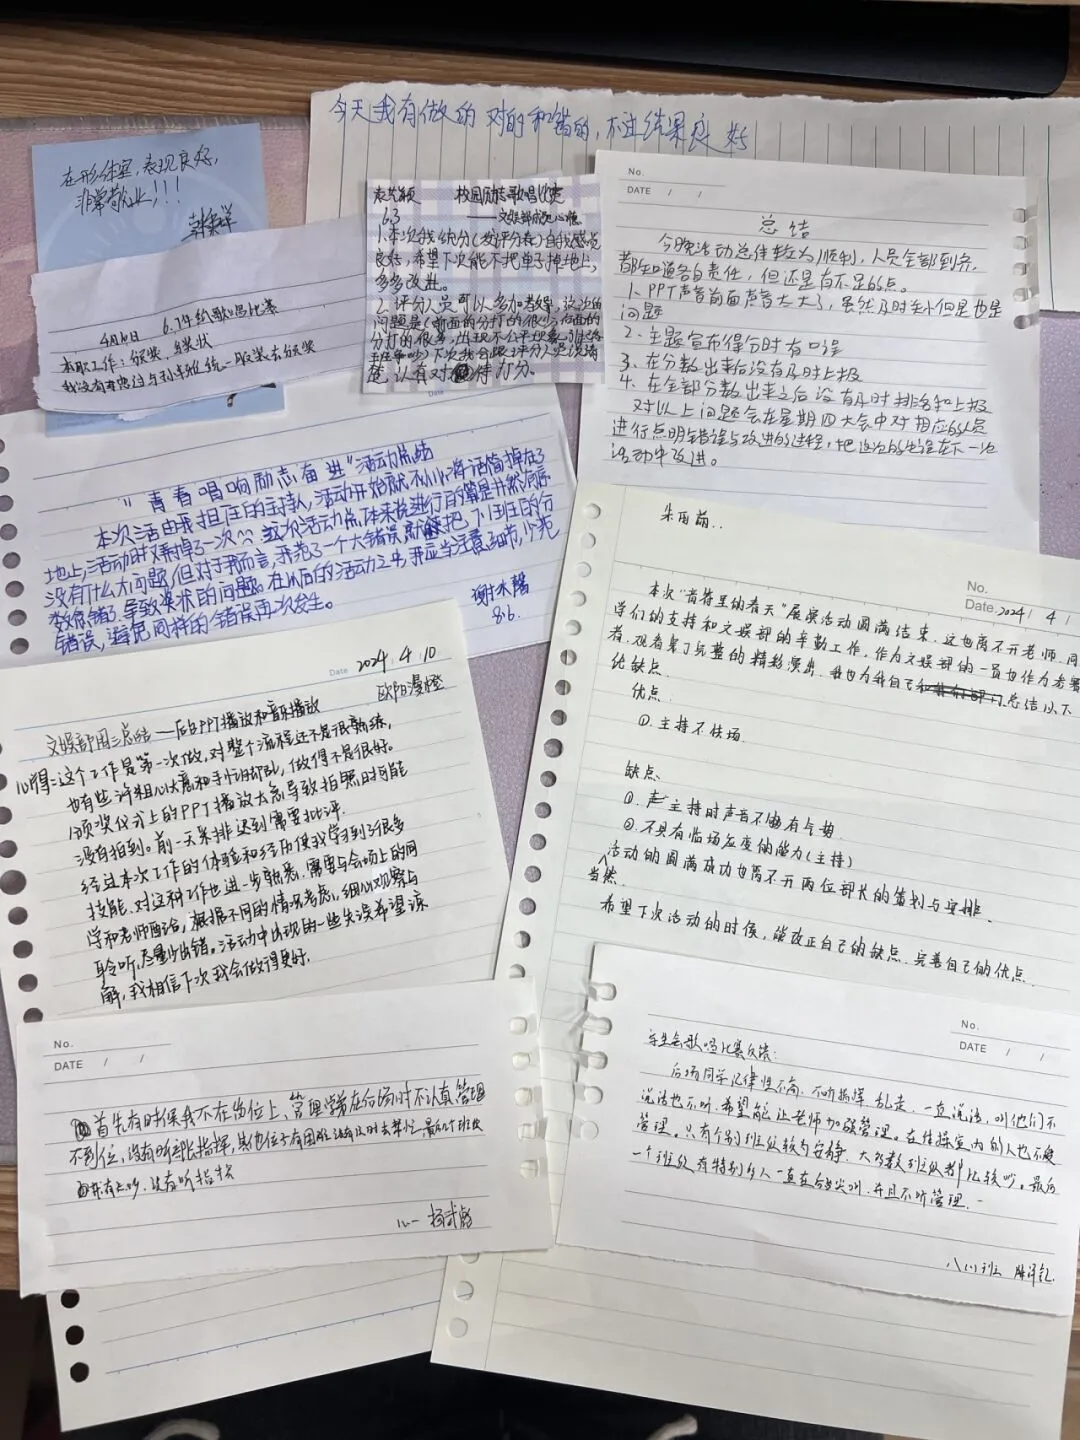 今天我有做的对的和错的，不过结果良好
在形体室，表现良好，
非常敬业！！！
4月10日 6.7年级歌唱比赛
本职工作：颁奖、奖状
校园励志歌唱比赛
6.3 ——文娱部成员心得
1.本次我统分(发评分表)自我感觉
良好，希望下次能不把单子掉地上，
多多改进。
2.评分人员可以多加考虑，这次的
问题是(前面的分打的很少，后面的
分打的很多，出现不公平现象，引起各
班争吵)下次我会跟评分人员说清
楚，认真对待打分。
No.
DATE / /
总结
今晚活动总体较为顺利，人员全部到齐，
都知道各自责任，但还是有不足的点。
1、PPT声音前面声音太大了，虽然及时关小但是也是
问题
2、主题宣布得分时有口误
3、在分数出来后没有及时上报
4、在全部分数出来之后没有及时排名和上报
对以上问题会在星期四大会中对相应的人员
进行点明错误与改进的过程，把这次的失误在下一次
活动中改进。
Date
"青春唱响励志奋进"活动总结
本次活由我担任的主持人，活动开始就不小心将话筒掉在了
地上，活动时又弄掉了一次
没有什么大问题，但对于我而言，我犯了一个大错误，就把下个班的分
数念错了，导致奖状的问题。在以后的活动之中，我应当注意细节，少犯
错误，避免同样的错误再次发生。
谢沐馨
8.6.
朱雨萌..
No.
Date. 2024 / 4 /
本次"肯特里的春天"展演活动圆满结束，这也离不开老师、同
学们的支持和文娱部的辛勤工作，作为文娱部的一员也作为参赛
者，观看着了完整的精彩演出，我也为我自己总结以下
优缺点.
优点.
①.主持不怯场.
缺点.
①.声主持时声音不够有气势.
②.不具有临场应变的能力(主持)
当然活动的圆满成功也离不开两位部长的策划与安排.
希望下次活动的时候，能改正自己的缺点.完善自己的优点.
Date 2024. 4. 10
欧阳漫橙
文娱部周三总结——后台PPT播放和音乐播放
心得：这个工作是第一次做，对整个流程还不是很熟练，
也有些许粗心大意和手忙脚乱，做得不是很好。
颁奖仪式上的PPT播放太急导致拍照时可能
没有拍到。前一天彩排迟到需要批评.
经过本次工作的体验和经历使我学习到了很多
技能，对这种工作也进一步熟悉，需要与会场上的同
学和老师配合，根据不同的情况考虑，细心观察与
聆听，尽量少出错。活动中出现的一些失误希望谅
解，我相信下次我会做得更好.
No.
DATE / /
首先有时候我不在岗位上、管理学弟在台场时不认真，管理
不到位，没有听部长指挥，其他位子有困难没有及时去帮忙，最后几个班级
没有听指挥
No.
DATE / /
学生会歌唱比赛反馈：
后场同学纪律性不高，不听指挥，乱走，一直说话，叫他们不
说话也不听，希望能让老师加强管理。在体操室内的人也不受
管理。只有个别班级较为安静，大多数班级都比较吵。最后
一个班级，有特别多人一直在台后尖叫，并且不听管理.
八(1)班